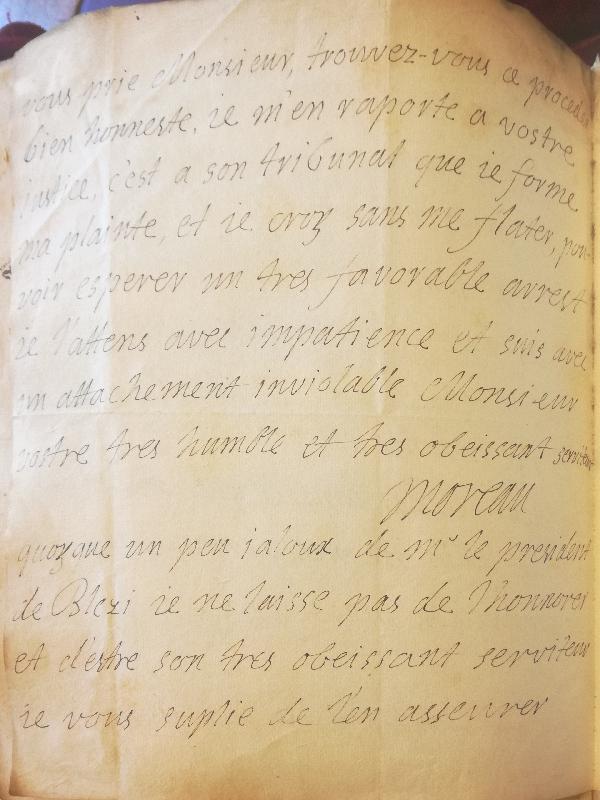 vous prie Monsieur, trouvez-vous ce procedé
bien honneste, ie m'en raporte a vostre
iustice, c'est a son tribunal que ie forme
ma plainte, et ie croy sans me flater, pou-
voir esperer un tres favorable arrest
ie l'attens avec impatience et suis avec
un attachement inviolable Monsieur
vostre tres humble et tres obeissant serviteur
Moreau
quoyque un peu ialoux de mr le president
de Blezi ie ne laisse pas de l'honnorer
et d'estre son tres obeissant serviteur
ie vous suplie de l'en asseurer